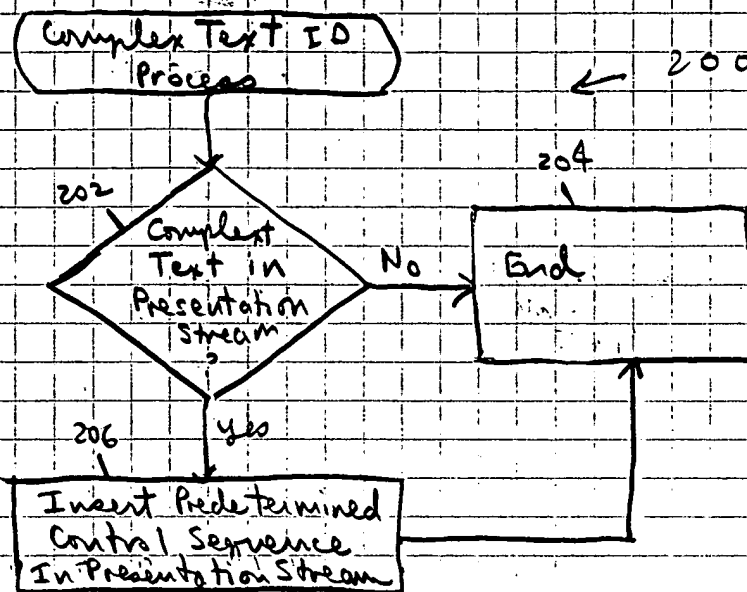 Complex Text ID
Process
200
202
204
Complext
Text in
Presentation
Stream
?
No
End
Yes
206
Insert Predetermined
Control Sequence
In Presentation Stream